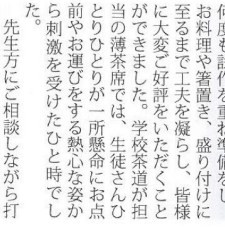 何度も試作を重ね準備をし
お料理や箸置き、盛り付けに
至るまで工夫を凝らし、皆様
に大変ご好評をいただくこと
ができました。学校茶道が担
当の薄茶席では、生徒さんひ
とりひとりが一所懸命にお点
前やお運びをする熱心な姿か
ら刺激を受けたひと時でし
た。
先生方にご相談しながら打